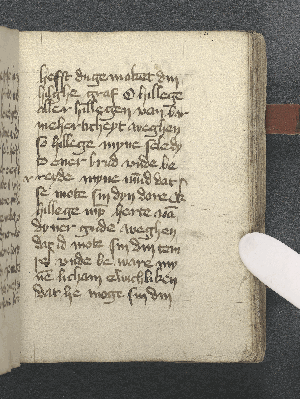 hefft du gemaket din
hilghe graf O hillege
aller hilligen van bar
meherticheyt weghen
so hillege myne sele dy
to ener brud vnde be
reyde myne mund dat
se mote sin dyn dore
hillege my herte
dyner gode weghen
dat id mote sin din tem
pel vnde be ware my
licham ewichliken
dat he moge sin din